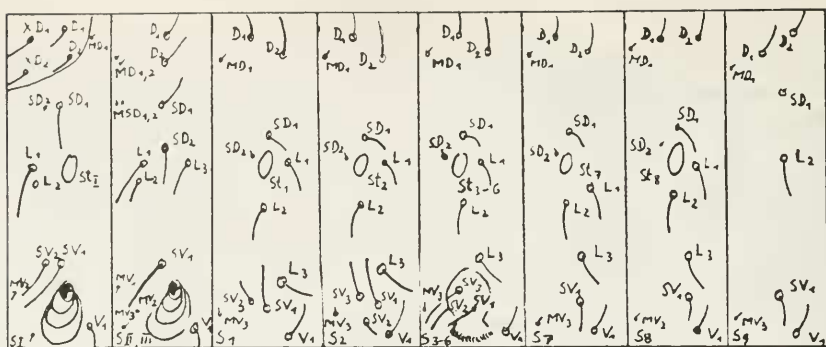 XD1 D1
XD2 D2 MD1
SD2 SD1
L1 L2 StI
SV2 SV1
MV2
SI V1
D1
D2
MD1,2
MSD1,2 SD1
SD2
L1 L2 L3
SV1
MV1
MV3 MV2
SII,III V1
D1 D2
MD1
SD1
SD2 L1
St1
L2
L3
SV3 SV1
MV3
S1 V1
D1 D2
MD1
SD1
SD2 L1
St2
L2
L3
SV3 SV1
MV3 SV2
S2 V1
D1 D2
MD1
SD1
SD2 L1
St3-6
L2
L3
MV3 SV3
SV2 SV1
S3-6 V1
D1 D2
MD1
SD1
SD2 St7
L1
L2
L3
SV1
MV3
S7 V1
D1 D2
MD1
SD1
SD2
St8 L1
L2
L3
SV1
MV3
S8 V1
D1 D2
MD1
SD1
L2
SV1
MV3
S9 V1